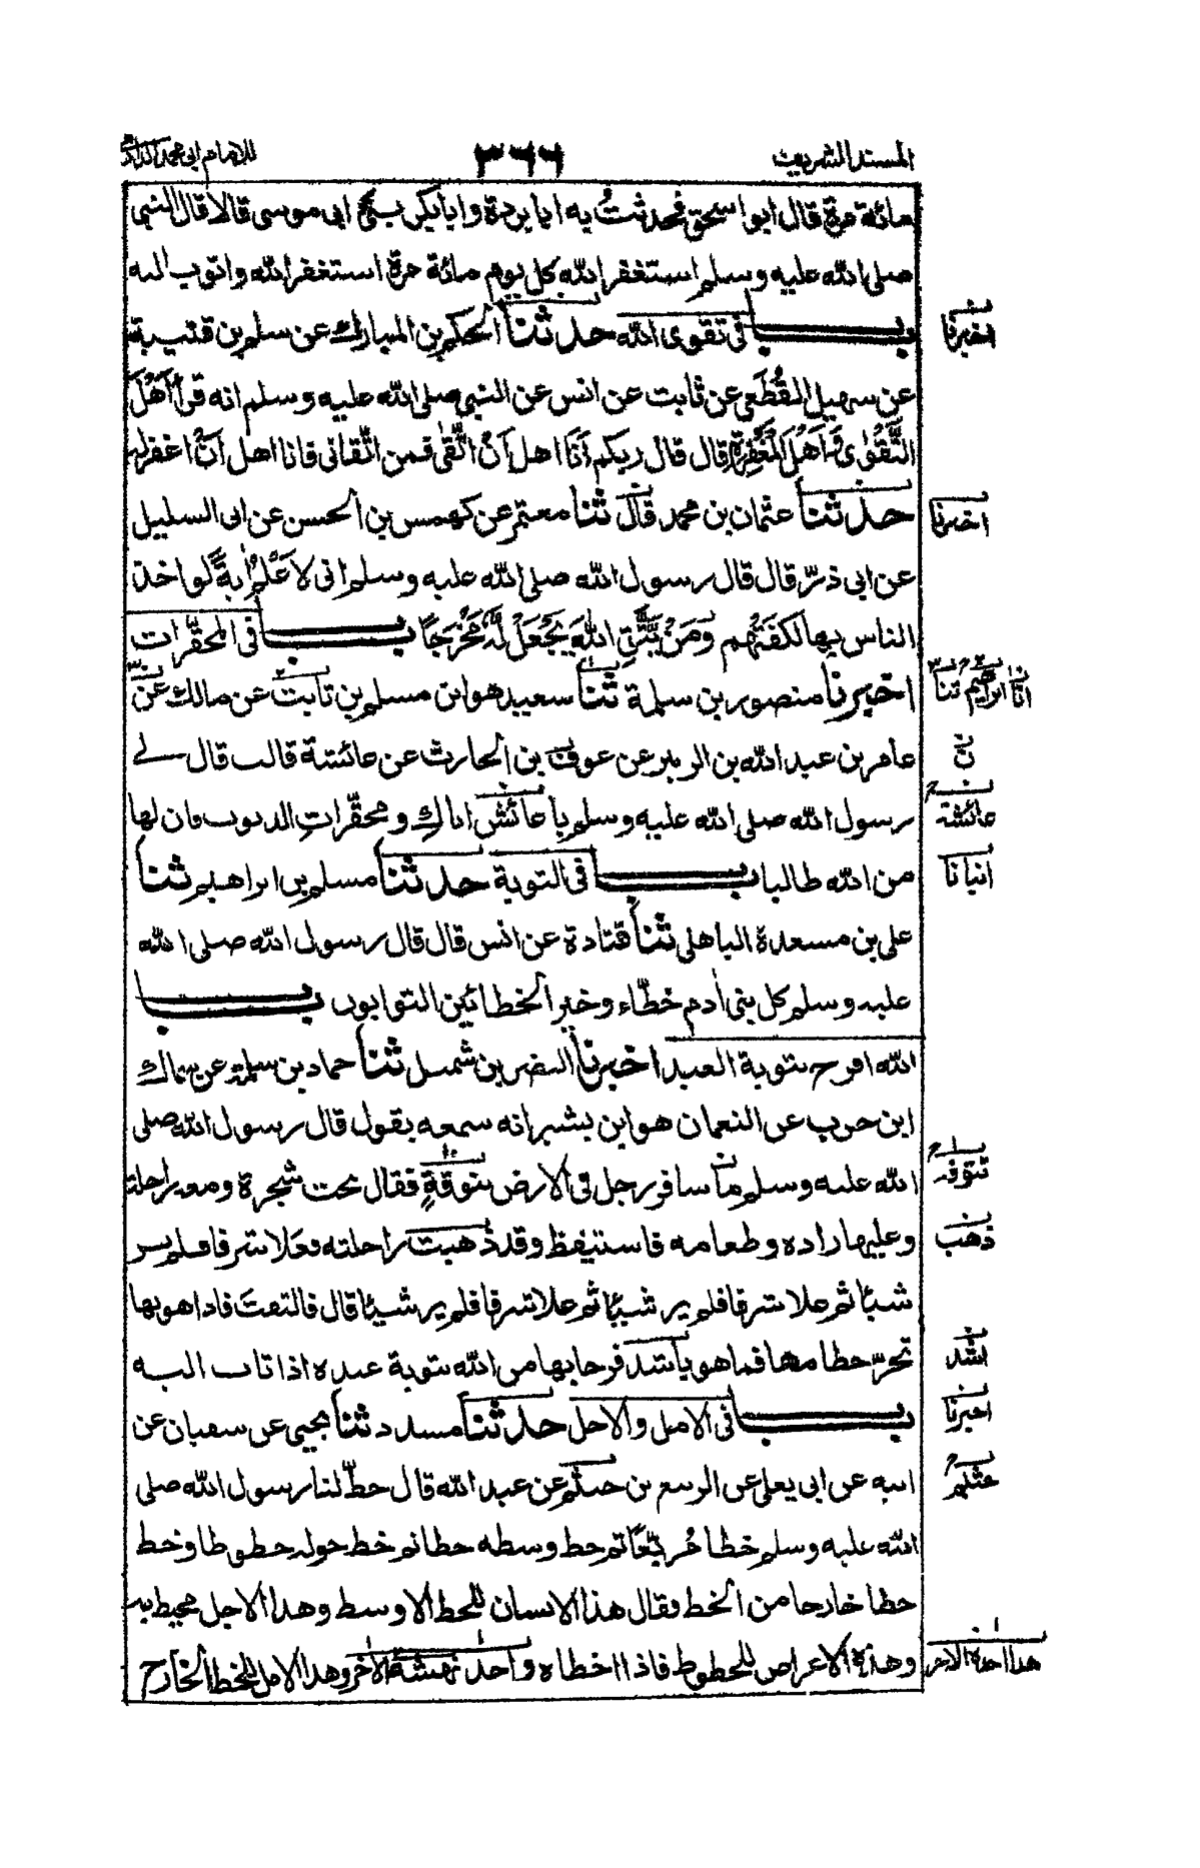 المسند الشريف ٣٦٦ للامام ابى محمد الدارمى
مائة مرة قال ابو اسحق فحدثت به ابا بردة و ابا بكر بنى ابى موسى قالا قال النبى
صلى الله عليه وسلم استغفر الله كل يوم مائة مرة استغفر الله واتوب اليه
باب فى تقوى الله حدثنا الحكم بن المبارك عن سلم بن قتيبة
اخبرنا
عن سهيل القُطَعى عن ثابت عن انس عن النبى صلى الله عليه وسلم انه قرأ اَهْلُ
التَّقْوٰى وَاَهْلُ الْمَغْفِرَةِ قال قال ربكم أنَا اهل اَنْ اُتَّقٰى فمن اتّقانى فانا اهل اَنْ اغفر له
حدثنا عثمان بن محمد قال ثنا معتمر عن كهمس بن الحسن عن ابى السليل
اخبرنا
عن ابى ذرّ قال قال رسول الله صلى الله عليه وسلم انى لاَعْلَمُ اٰيةً لو اخذ
الناس بها لكفَتْهُم وَمَنْ يَتَّقِ اللهَ يَجْعَلْ لَهُ مَخْرَجًا باب فى المحقّرات
اخبرنا منصور بن سلمة ثنا سعيد هو ابن مسلم بن ثابت عن مالك عن
انا ابراهيم ثنا
عامر بن عبد الله بن الزبير عن عوف بن الحارث عن عائشة قالت قال لے
ن
رسول الله صلى الله عليه وسلم يا عائش اياك و محقّراتِ الذنوب فان لها
عائشة
من الله طالبا باب فى التوبة حدثنا مسلم بن ابراهيم ثنا
انبانا
على بن مسعدة الباهلى ثنا قتادة عن انس قال قال رسول الله صلى الله
عليه وسلم كل بنى اٰدم خطّاء وخير الخطائين التوابون باب
الله افرح بتوبة العبد اخبرنا النضر بن شميل ثنا حماد بن سلمة عن سماك
ابن حرب عن النعمان هو ابن بشير انه سمعه يقول قال رسول الله صلى
الله عليه وسلم ما سافر رجل فى الارض بتنوفةٍ فقال تحت شجرة ومعه راحلته
تنوفة
وعليها زاده وطعامه فاستيقظ وقد ذهبت راحلته فعَلا شرفا فلم ير
ذهب
شيئا ثم علا شرفا فلم ير شيئا ثم علا شرفا فلم ير شيئا قال فالتفتَ فاذا هو بها
تجرّ خطامها فما هو باشد فرحا بها من الله بتوبة عبده اذا تاب اليه
اشد
باب فى الامل والاجل حدثنا مسدد ثنا يحيى عن سفيان عن
اخبرنا
ابيه عن ابى يعلى عن الربيع بن خثيم عن عبد الله قال خطّ لنا رسول الله صلى
خثيم
الله عليه وسلم خطا مُربّعًا ثم خط وسطه خطا ثم خط حوله خطوطا وخط
خطا خارجا من الخط فقال هذا الانسان للخط الاوسط وهذا الاجل محيط به
وهذه الاعراض للخطوط فاذا اخطاه واحد نهشه الاخر وهذا الامل للخط الخارج
هذا اخذه الاخر